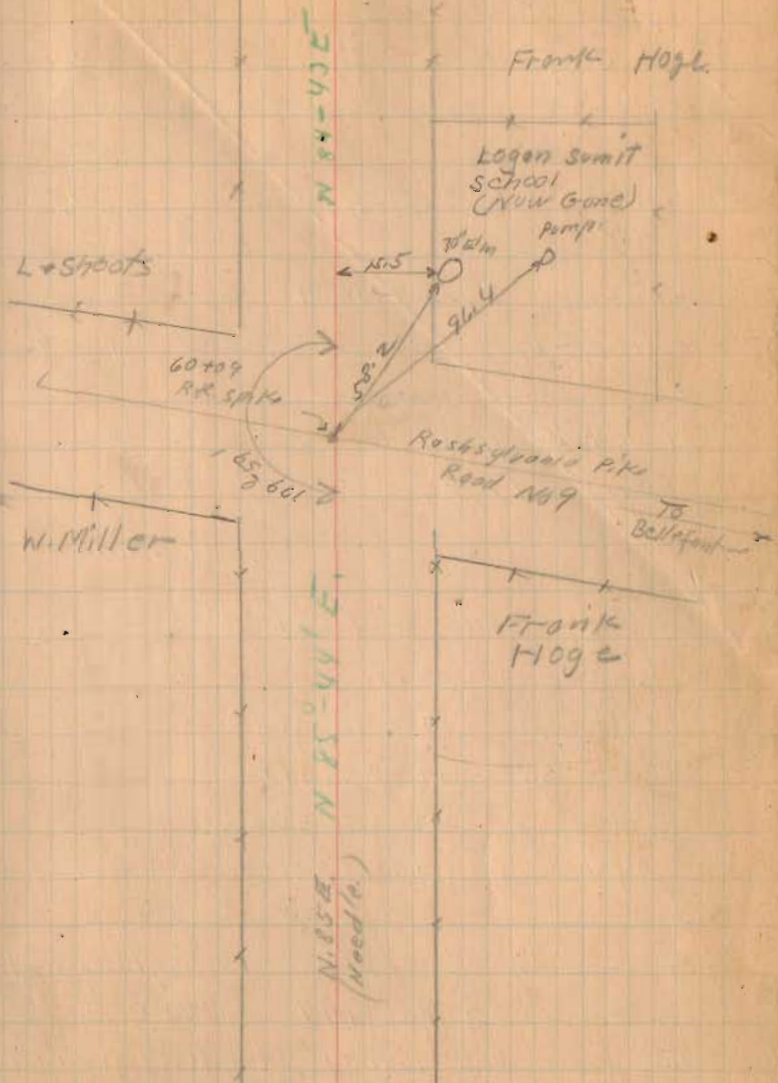 Frank Hoge
N 84-43 E
Logan Sumit
School
(Now Gone)
Pump
Elm
L Shoots
15.5
96.4
60+09
R.R. Spike
Rushsylvania Pike
Road No 9
To
Bellefont
W. Miller
Frank
Hoge
N 85°-44' E.
N. 85 E.
(Needle.)